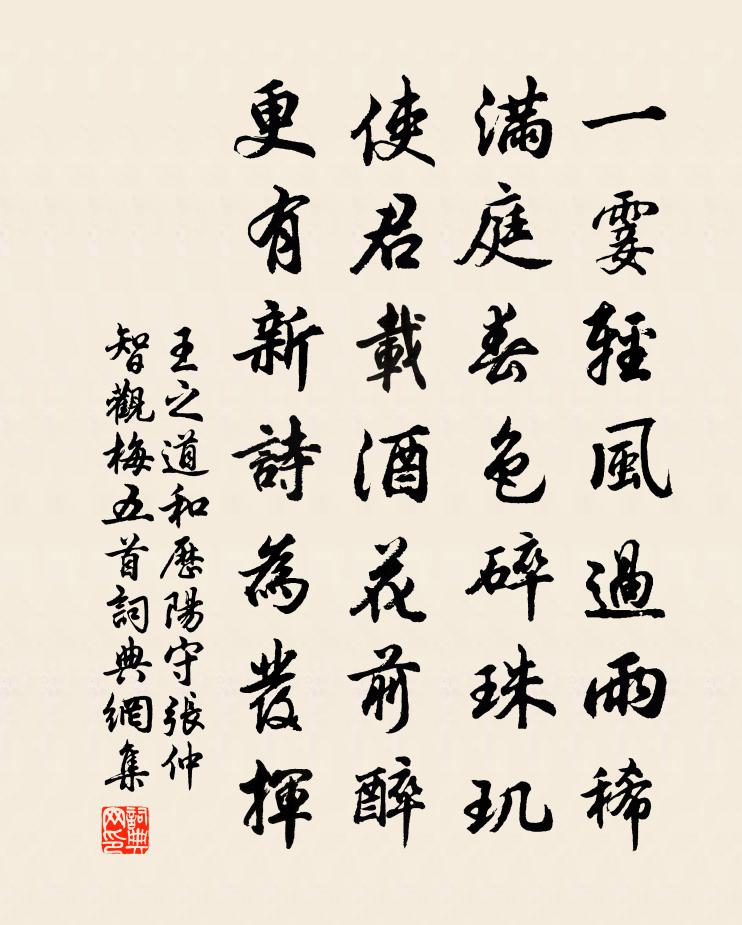 一霎輕風過雨稀
滿庭春色碎珠玑
使君載酒花前醉
更有新詩為發揮
王之道和歷陽守張仲
智觀梅五首詞典網集
詞典
网印